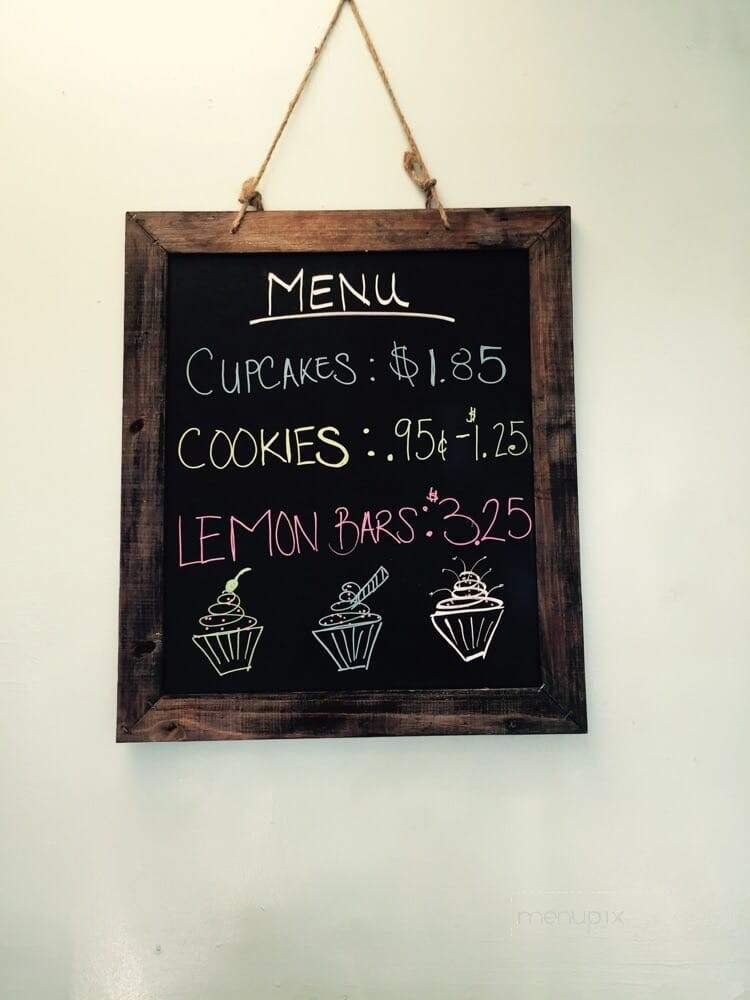 MENU
CUPCAKES: $1.85
COOKIES: .95¢-$1.25
LEMON BARS: $3.25
menupix